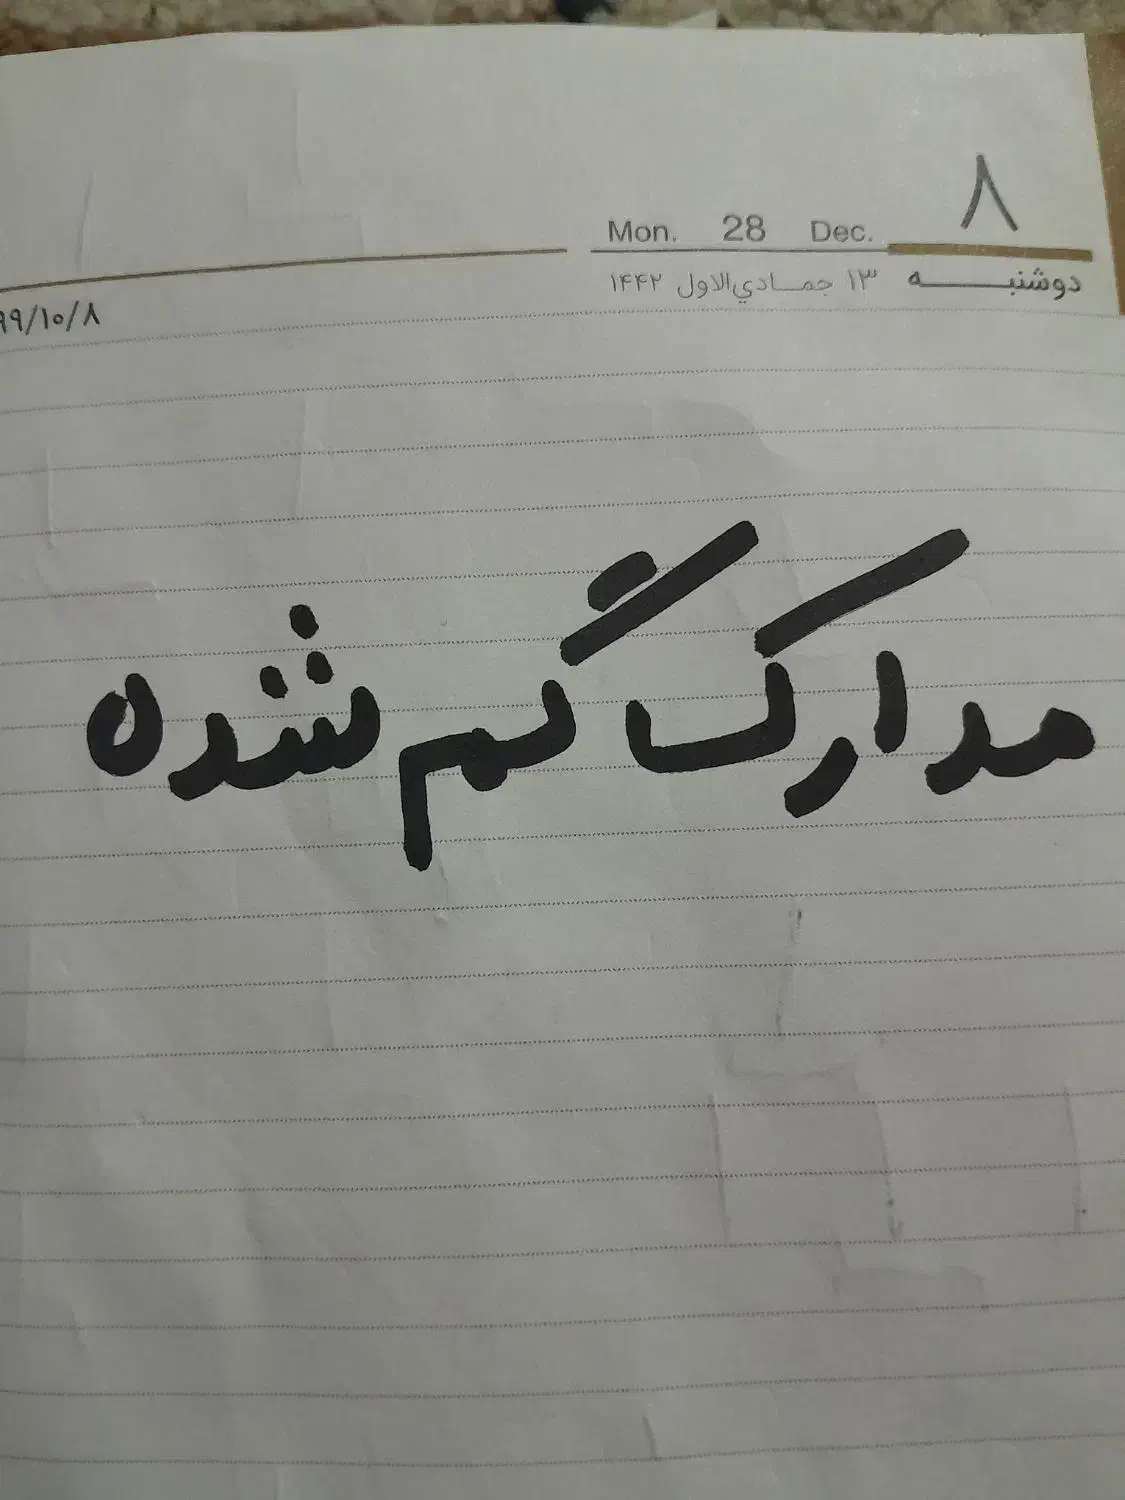 ۸
Mon. 28 Dec.
دوشنبه ۱۳ جمادي‌الاول ۱۴۴۲
۹۹/۱۰/۸
مدارک گم شده